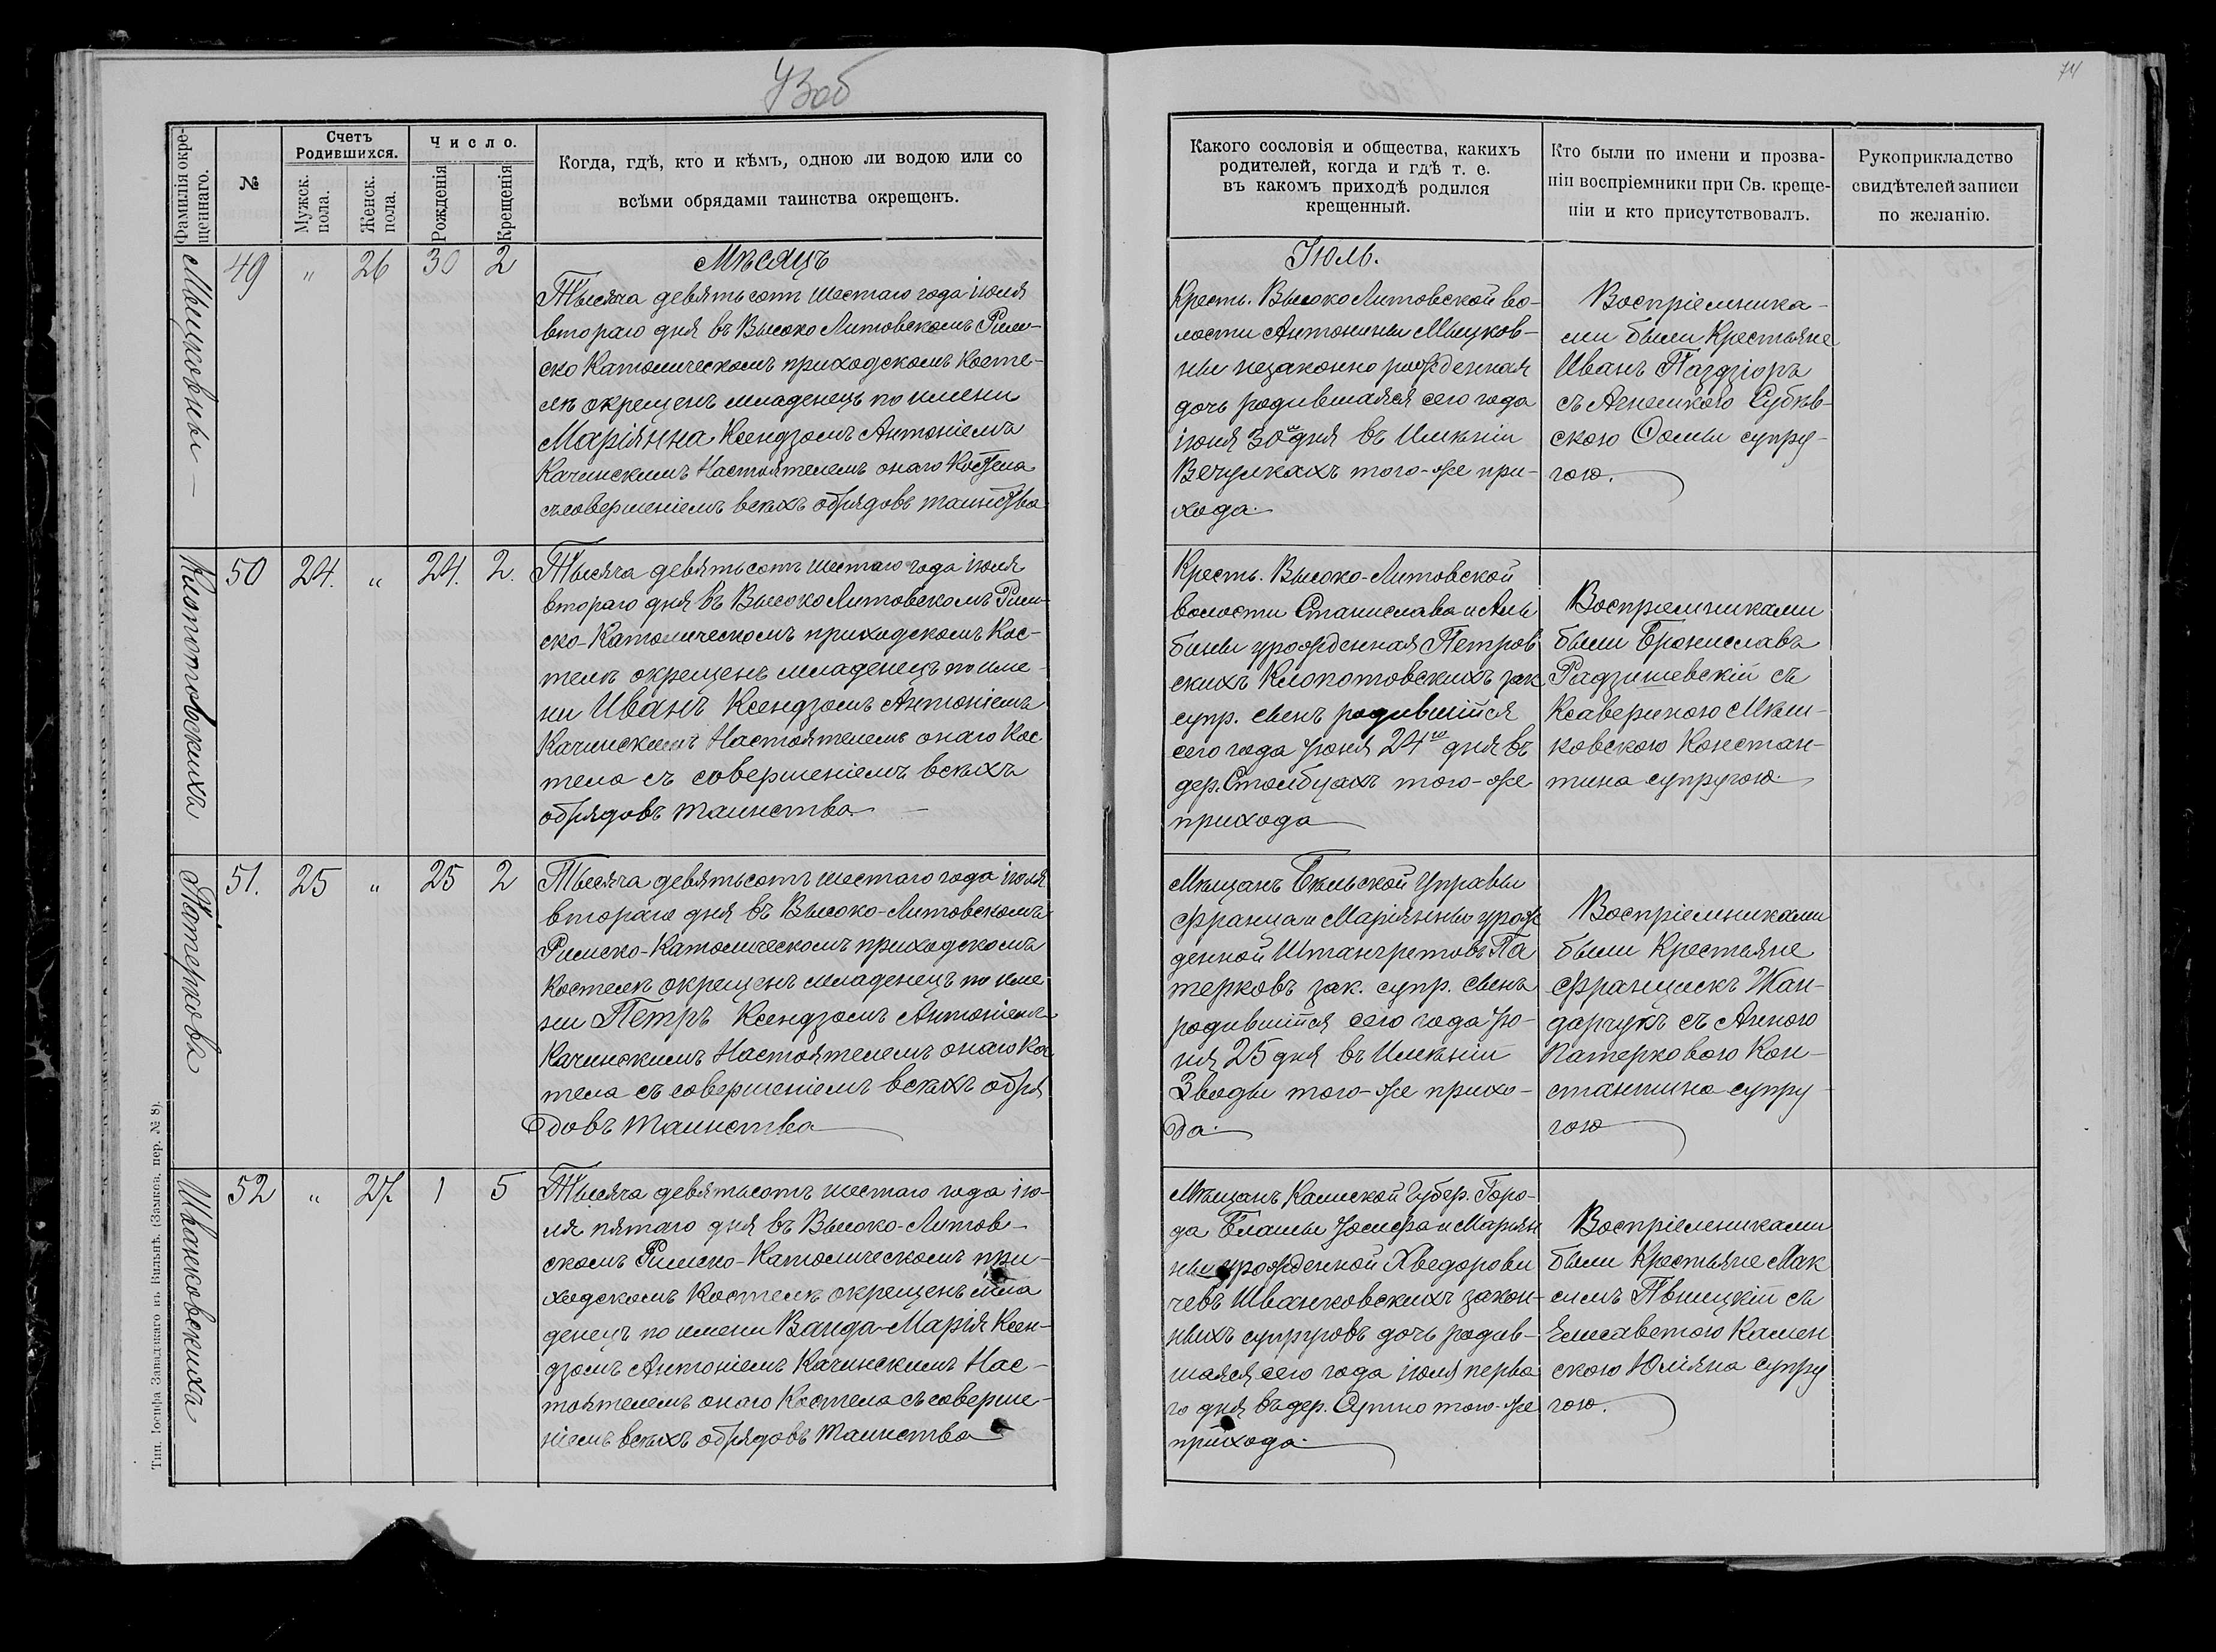 73об
74
Фамилія окре-
щеннаго.
№
Счетъ
Родившихся.
Мужск.
пола.
Женск.
пола.
Число.
Рожденія
Крещенія
Когда, гдѣ, кто и кѣмъ, одною ли водою или со
всѣми обрядами таинства окрещенъ.
Какого сословія и общества, какихъ
родителей, когда и гдѣ т. е.
въ какомъ приходѣ родился
крещенный.
Кто были по имени и прозва-
ніи воспріемники при Св. креще-
ніи и кто присутствовалъ.
Рукоприкладство
свидѣтелей записи
по желанію.
Мѣсяцъ
Іюль.
Мыцковны
49 " 26 30 2
Тысяча девятьсотъ шестаго года іюля
втораго дня въ Высоко Литовскомъ Рим-
ско Католическомъ приходскомъ косте-
лѣ окрещенъ младенецъ по имени
Маріянна Ксендзомъ Антоніемъ
Качинскимъ Настоятелемъ онаго Костела
съ совершеніемъ всѣхъ обрядовъ таинства
Кресть. Высоко Литовской во-
лости Антонины Мыцков-
ны незаконно рожденная
дочь родившаяся сего года
іюня 30го дня въ Имѣніи
Вечулкахъ того-же при-
хода.
Воспріемника-
ми были Крестьяне
Иванъ Паздзіоръ
съ Агнешкою Субѣв-
скою Ѳомы супру-
гою.
Клопотовскихъ
50 24. " 24. 2.
Тысяча девятьсотъ шестаго года іюля
втораго дня въ Высоко Литовскомъ Рим-
ско-Католическомъ приходскомъ Кос-
телѣ окрещенъ младенецъ по име-
ни Иванъ Ксендзомъ Антоніемъ
Качинскимъ Настоятелемъ онаго Кос
тела съ совершеніемъ всѣхъ
обрядовъ таинства.
Кресть. Высоко-Литовской
волости Станислава и Аль
бины урожденная Петров
скихъ Клопотовскихъ зак
супр. сынъ родившійся
сего года Іюня 24го дня въ
дер. Столбцахъ того-же
прихода
Воспріемниками
были Брониславъ
Радзишевскій съ
Ксавериною Мѣш-
ковскою Констан-
тина супругою.
Патерковъ
51. 25 " 25 2
Тысяча девятьсотъ шестаго года іюля
втораго дня въ Высоко-Литовскомъ
Римско-Католическомъ приходскомъ
Костелѣ окрещенъ младенецъ по име
ни Петръ Ксендзомъ Антоніемъ
Качинскимъ Настоятелемъ онаго Кос
тела съ совершеніемъ всѣхъ обря
довъ таинства
Мѣщанъ Бѣльской Управы
Франца и Маріянны урож
денной Штангретовъ Па
терковъ зак. супр. сынъ
родившійся сего года Ію-
ня 25 дня въ Имѣніи
Зводы того-же прихо-
да.
Воспріемниками
были Крестьяне
Францискъ Жан-
дарчукъ съ Анною
Патерковою Кон-
стантина супру-
гою
Иванковскихъ
52 " 27. 1 5
Тысяча девятьсотъ шестаго года ію-
ля пятаго дня въ Высоко-Литов-
скомъ Римско-Католическомъ при-
ходскомъ Костелѣ окрещенъ мла
денецъ по имени Ванда-Марія Ксен-
дзомъ Антоніемъ Качинскимъ Нас-
тоятелемъ онаго Костела съ соверше-
ніемъ всѣхъ обрядовъ таинства
Мѣщанъ Калиской Губер. Горо-
да Блашы Іосифа и Маріян
ны урожденной Хведорови
чевъ Иванковскихъ закон-
ныхъ супруговъ дочь родив-
шаяся сего года іюля перва
го дня въ дер. того-же
прихода.
Воспріемниками
были Крестьяне Мак
симъ съ
Елисаветою Камен
скою Юліяна супру
гою.
Тип. Іосифа Завадзкаго въ Вильнѣ. (Замков. пер. № 8).